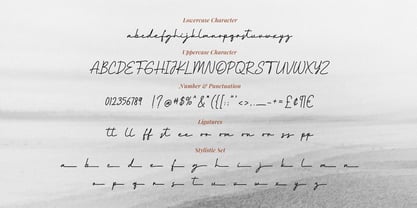 Lowercase Character
abcdefghijklmnopqrstuvwxyz
Uppercase Character
ABCDEFGHIJKLMNOPQRSTUVWXYZ
Number & Punctuation
0123456789 !?@#$%^&*(
Ligatures
tt ll ff st ee oo on on or ss pp
Stylistic Set
a b c d e f g h i j k l m n
o p q r s t u v w x y z